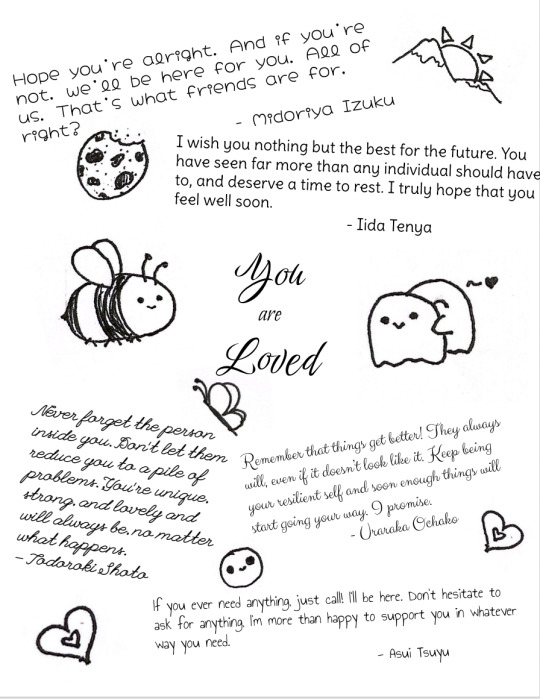 Hope you're alright. And if you're
not. we'll be here for you. All of
us. That's what friends are for.
right?
- Midoriya Izuku
I wish you nothing but the best for the future. You
have seen far more than any individual should have
to, and deserve a time to rest. I truly hope that you
feel well soon.
- Iida Tenya
You
are
Loved
Never forget the person
inside you. Don't let them
reduce you to a pile of
problems. You're unique,
strong, and lovely and
will always be, no matter
what happens.
- Todoroki Shoto
Remember that things get better! They always
will, even if it doesn't look like it. Keep being
your resilient self and soon enough things will
start going your way. I promise.
- Uraraka Ochako
If you ever need anything, just call! I'll be here. Don't hesitate to
ask for anything, I'm more than happy to support you in whatever
way you need.
- Asui Tsuyu